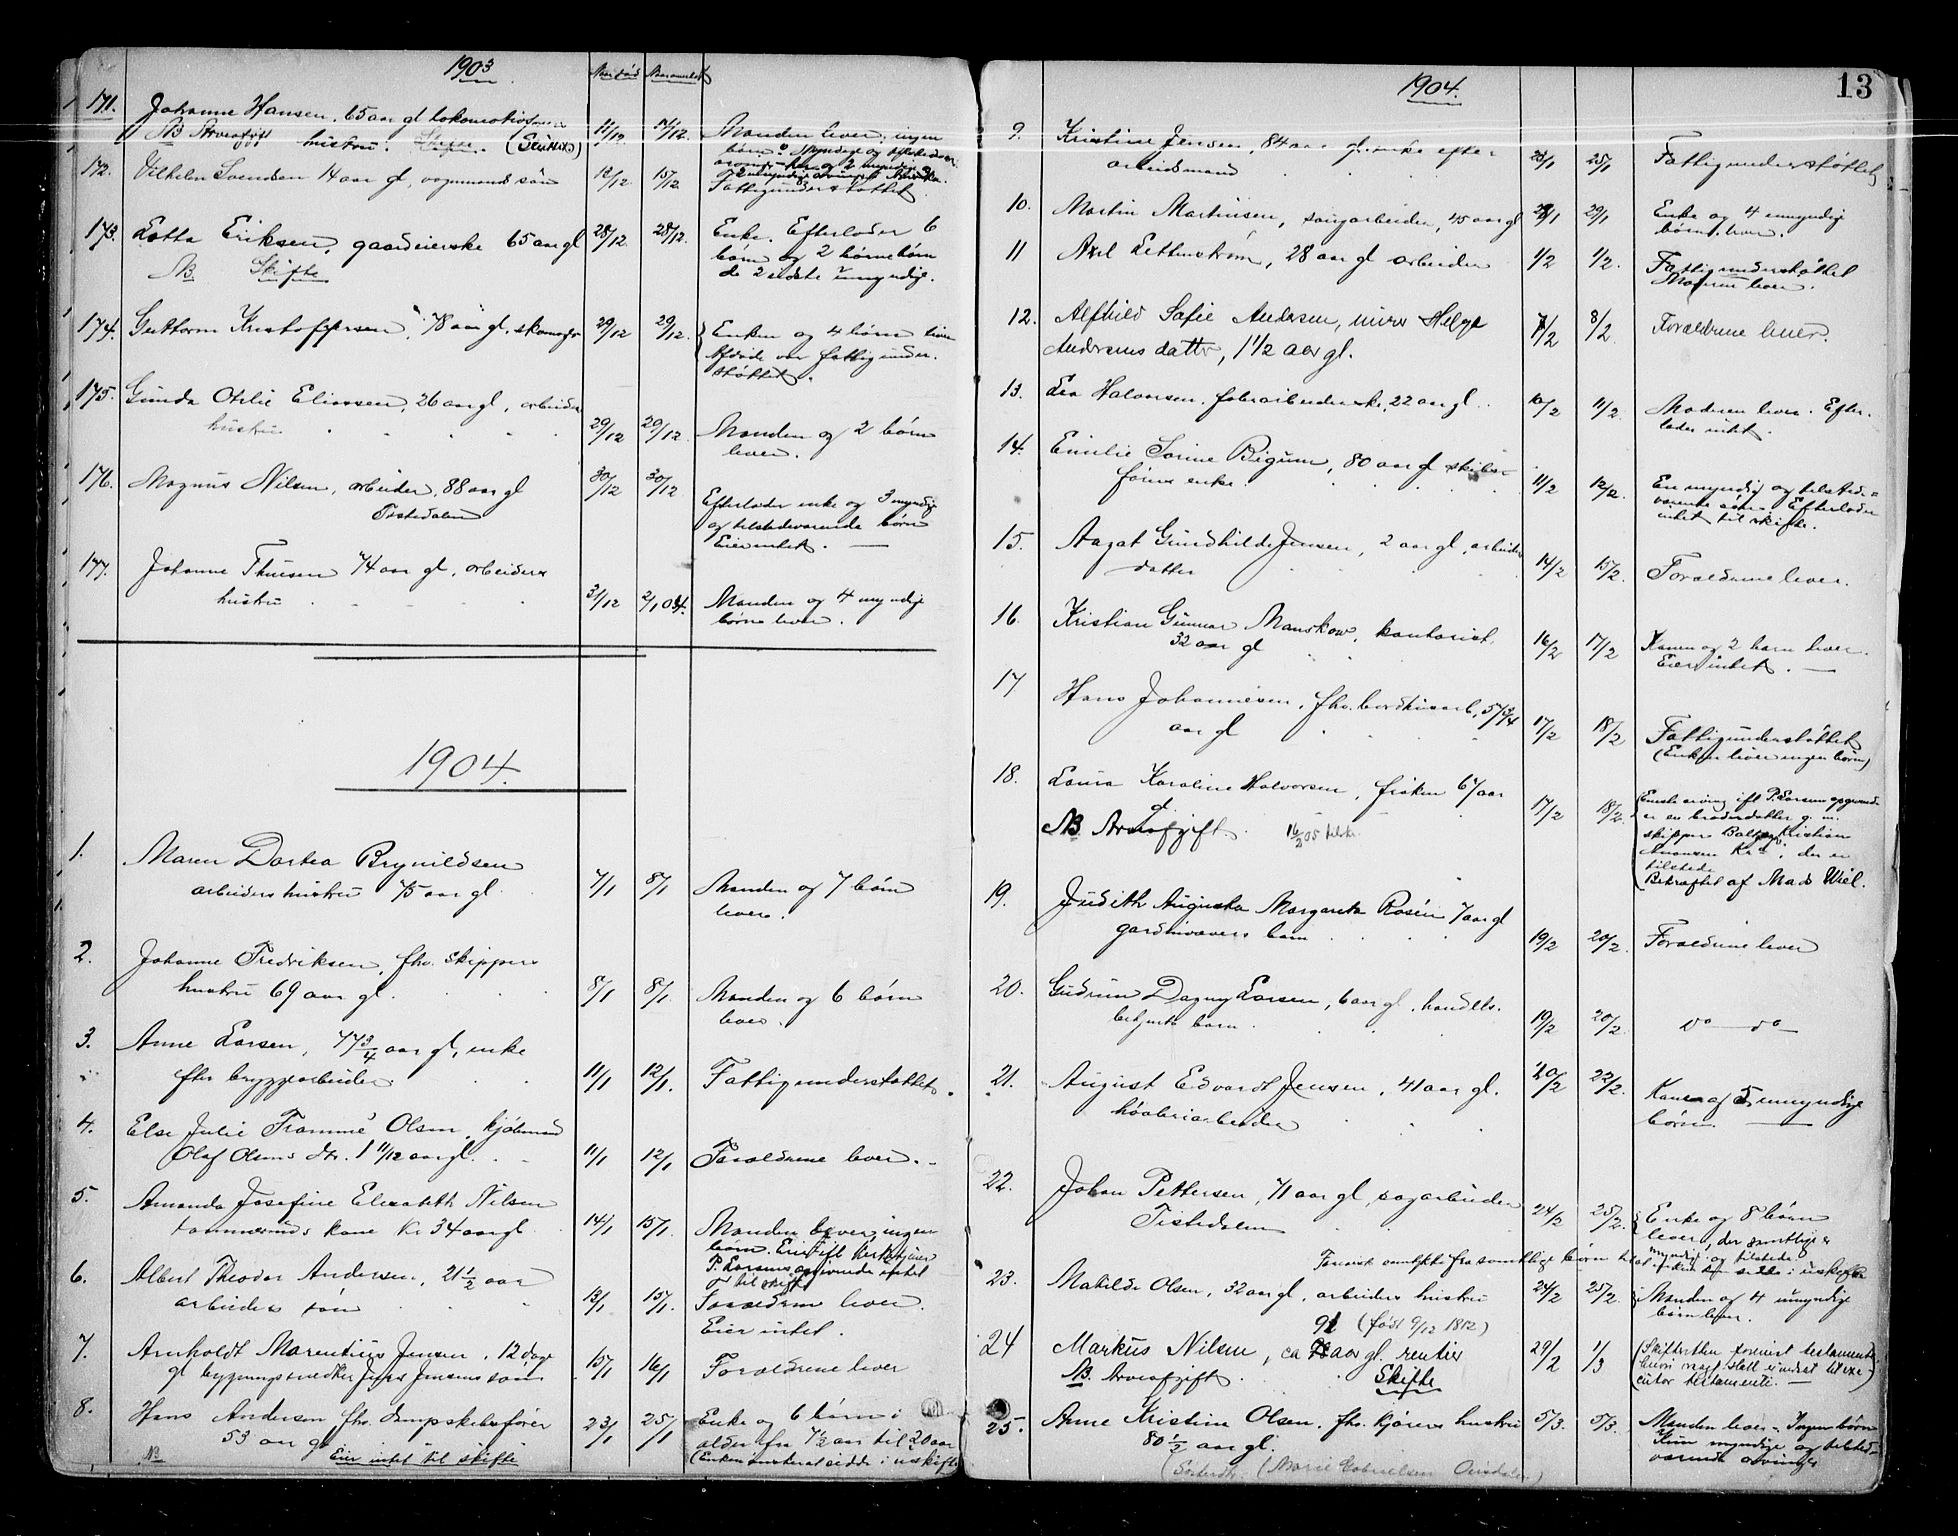 1903
171. Johanne Hansen, 65 aar gl lokomotiv
NB Arveafgift hustru. Skifte. 11/12 14/12. Manden lever, ingen
børn.
172. Vilhelm Svendsen 14 aar gl, vognmands søn 12/12 15/12
Fattigunderstøttet
173. Lotta Eriksen, gaardeierske 65 aar gl 28/12 28/12. Enke. Efterlader 6
børn og 2 børnebørn
NB Skifte de 2 sidste umyndig.
174. Guttorm Kristoffersen, 78 aar gl, skomager 29/12 29/12. Enken og 4 børn lever
Afdøde var fattigunder-
støttet.
175. Gunda Otilie Eliassen, 26 aar gl, arbeider
hustru 29/12 29/12. Manden og 2 børn
lever.
176. Magnus Nilsen, arbeider, 88 aar gl 30/12 30/12
Tistedalen Efterlader enke og 3 myndige
og tilstedeværende børn
Eier intet.
177. Johanne Thuesen 74 aar gl, arbeiders
hustru 31/12 2/1 04. Manden og 4 myndige
børn lever.
1904.
1. Maren Dortea Brynildsen
arbeiders hustru 75 aar gl. 7/1 8/1 Manden og 7 børn
lever.
2. Johanne Fredriksen, fhv. skippers
hustru 69 aar gl. 8/1 8/1. Manden og 6 børn
lever.
3. Anne Larsen, 77 3/4 aar gl, enke
efter bryggearbeider 11/1 12/1. Fattigunderstøttet.
4. Else Julie Framme Olsen, kjøbmand
Olaf Olsens dtr. 1 11/12 aar gl. 11/1 12/1 Forældrene lever.
5. Amanda Josefine Elisabeth Nilsen
tømmermands kone 34 aar gl 14/1 15/1. Manden lever, ingen
børn.
P. Larsens opgivende intet
til skifte
6. Albert Theodor Andersen, 21 1/2 aar
arbeiders søn 13/1 15/1. Forældrene lever.
Eier intet.
7. Arnholdt Marentius Jensen, 12 dage
gl bygningssnedker Jens Jensens søn 15/1 16/1 Forældrene lever
8. Hans Andersen fhv. dampskibsfører 23/1 25/1 Enke og 6 børn i
53 aar gl alder fra 7 1/2 aar til 20 aar
NB Eier intet til skifte (Enken ønsker at sidde i uskifte
13
1904.
9. Kristine Jensen, 84 aar gl. enke efter
arbeidsmand 25/1 25/1 Fattigunderstøttet
10. Martin Martinsen, saugarbeider, 45 aar gl 29/1 Enke og 4 umyndige
børn lever.
11 Axel Lettenstrøm, 28 aar gl arbeider 1/2 1/2. Fattigunderstøttet
Moderen lever.
12. Alfhild Sofie Andersen, murer Helge
Andersens datter, 1 1/2 aar gl. 7/2 8/2. Forældrene lever.
13. Lea Halvorsen, fabrarbeiderske, 22 aar gl 10/2 11/2. Moderen lever. Efter-
lader intet.
14. Emilie Sorine Bigum, 80 aar gl skibs-
førers enke. 11/2 12/2. En myndig og tilstede-
værende søn. Efterlader
intet til skifte.
15. Aagot Gundhilde Jensen, 2 aar gl, arbeider
datter 14/2 15/2. Forældrene lever.
16. Kristian Gunnar Manskow, kontorist
32 aar gl 16/2 17/2 Konen og 2 barn lever.
Eier intet.
17 Hans Johannesen, fhv. bordhusarb, 57 3/4
aar gl 17/2 18/2 Fattigunderstøttet
(Enken lever ingen børn)
18. Laura Karoline Halvorsen, frøken 67 aar
gl. 17/2 18/2. Eneste arving ifl P. Larsens opgivende
er en broderdatter g. m.
NB Arveafgift. 16/2 05 skipper Kristian
Amonsen, der er
tilstede
Bekræftet af Mads Wiel.
19. Judith Augusta Margareta Rosén 7 aar gl
gardinvævers barn 19/2 20/2. Forældrene lever
20. Gudrun Dagny Larsen, 6 aar gl, handels-
betjents barn 19/2 20/2 do do
21. August Edvardt Jensen, 41 aar gl. 20/2 22/2. Kone og 5 umyndige
børn.
22. Johan Pettersen, 71 aar gl, sagarbeider
Tistedalen 24/2 25/2. Enke og 8 børn
lever, der samtlige er
myndige og tilstede
23. Matilde Olsen, 32 aar gl, arbeiders hustru 24/2 25/2. Manden og 4 umyndige
børn lever.
91 (født 9/12 1812)
24 Markus Nilsen, ca aar gl. rentier 29/2 1/3 (Skifteretten forevist testament
NB. Arveafgift. Skifte
25. Anne Kristine Olsen, fhv. kjøres hustru 5/3. 5/3. Manden lever. Ingen børn
80 1/2 aar gl. Kun myndige og tilstede-
værende arvinger
(Marie Gabrielsen